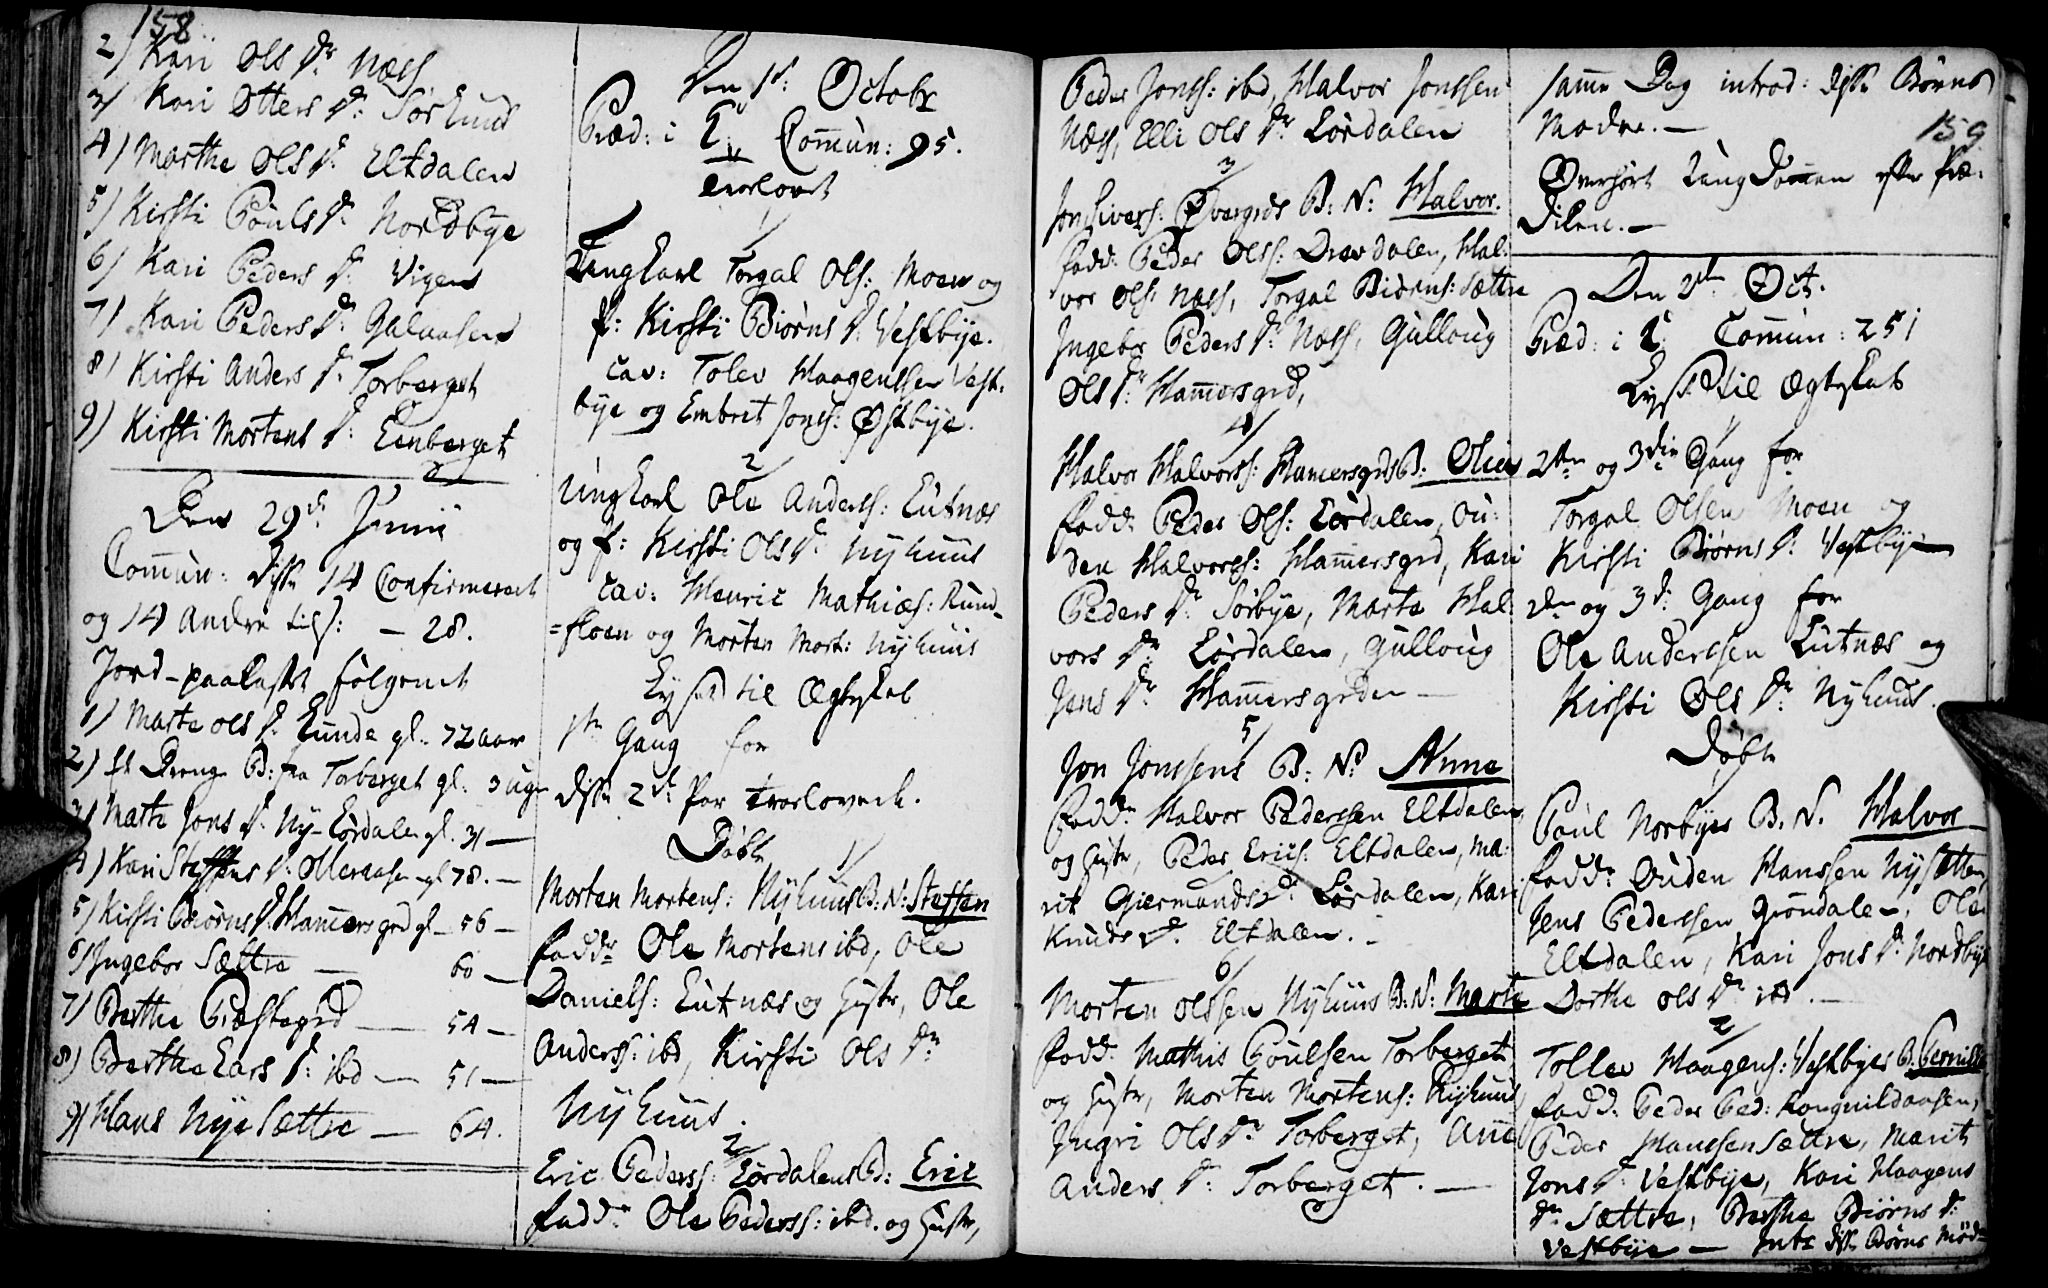 158
2) Kari Ols Dr Næss
3) Kari Otters Dr: Sørhuus
4) Marthe Ols Dr Eltdalen
5) Kirsti Pouls Dr Nordbye
6) Kari Peders Dr: Vigen
7) Kari Peders Dr: Galaasen
8) Kirsti Anders Dr Torberget
9) Kirsti Mortens Dr: Eenberget
Den 29de Junii
Com̄un: disse 14 Confirmered
og 14 Andre tils: — 28.
Jord-paakastet følgende
1) Marte Ols Dr Lunde gl. 72 aar
2) et Drenge B: fra Torberget gl. 3 Uger
3) Marte Jons Dr Ny-Lørdalen gl. 31 —
4) Kari Steffens Dr Moraasen gl 78. —
5) Kirsti Biørns Dr Ham̄ersgrd gl — 56 —
6) Ingebor Sættre — 60 —
7) Berthe Præstegrd — 54 —
8) Berthe Lars Dr: ibd — 51 —
9) Hans Nye Sættre — 64.
Den 1st: Octobr
Præd: i T: Com̄un: 95.
Trorlovet
1/
Ungkarl Torgal Ols: Moen og
p: Kirsti Biørns Dr Vestbye.
Cav: Tolev Haagenssen Vest-
bye og Embret Jons: Østbye.
2/
Ungkarl Ole Anderss: Lutnæs
og p: Kirsti Ols Dr Nyhuus
Cav: Henric Mathiæs: Rund-
=floen og Morten Mort: Nyhuus
Lyst til Ægteskab
1ste Gang for
disse 2de Par trorlovede.
Døbt
1/
Morten Mortens: Nyhuus B: N: Steffen
fadde Ole Mortens ibd, Ole
Daniels: Lutnæs og Hustr, Ole
Anderss: ibd, Kirsti Ols Dr
Nyhuus.
2/
Eric Pederss: Lørdalens B: Eric
fadd: Ole Pederss: ibd. og Hustr,
Peder Jonss: ibd, Halvor Jonssen
Næss, Elli Ols Dr Lørdalen
3/
Jon Sivers: Øvergrds B: N: Halvor.
fadd: Peder Olss: Drevdalen, Hal:
vor Ols: Næss, Torgal Biørns: Sættre
Ingebor Peders Dr: Næss, Gulloug
Ols Dr: Ham̄ersgrd,
4/
Halvor Halvorss: Ham̄ersgrds B: Olien
fadd: Peder Ols: Lørdalen, Ou:
den Halvorss: Ham̄ersgrd, Kari
Peders Dr Sørbye, Marte Hal:
vors Dr: Lørdalen, Gulloug
Jens Dr Ham̄ersgrden —
5/
Jon Jonssens B: N: Anne
fadde Halvor Pederssen Eltdalen
og Hustr, Peder Erics: Eltdalen, Ma:
rit Giermunds Dr Lørdalen, Kari
Knuds Dr. Eltdalen. —
6/
Morten Olssen Nyhuus B: N: Marte
fadd: Mathis Poulsen Torberget
og Hustr, Morten Mortens: Nyhuus
Ingri Ols Dr Torberget, Anne
Anders Dr: Torberget. —
sam̄e Dag introd: disse Børns
Mødre. —
159
Overhørt Ungdom̄en efter Præ:
diken. —
Den 2den Oct.
Præd: i T: Com̄un: 251
Lyst til Ægteskab
1/
2den og 3die Gang for
Torgal Olsen Moen og
Kirsti Biørns Dr Vestbye
2den og 3de Gang for
Ole Anderssen Lutnæs og
Kirsti Ols Dr Nyhuus.
Døbt
1/
Poul Norbyes B. N. Halvor
fadd: Ouden Hanssen Nysætten,
Jens Pederssen Grøndalen, Ole
Eltdalen, Kari Jons Dr Nordbye
Dorthe Ols Dr ibd. —
2/
Tollev Haagens: Vestbyes B. Pernille
fadd: Peder Ped: Rongnildaasen,
Peder Hanssen Sættre, Marit
Jons Dr Vestbye, Kari Haagens
Dr Sættre, Berthe Biørns Dr
Vestbye — Intr disse Børns Mød=